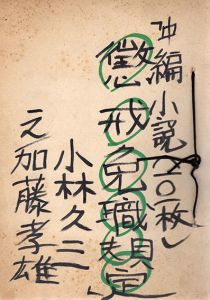 中編小説
懲戒免職規定
小林久三
え 加藤孝雄